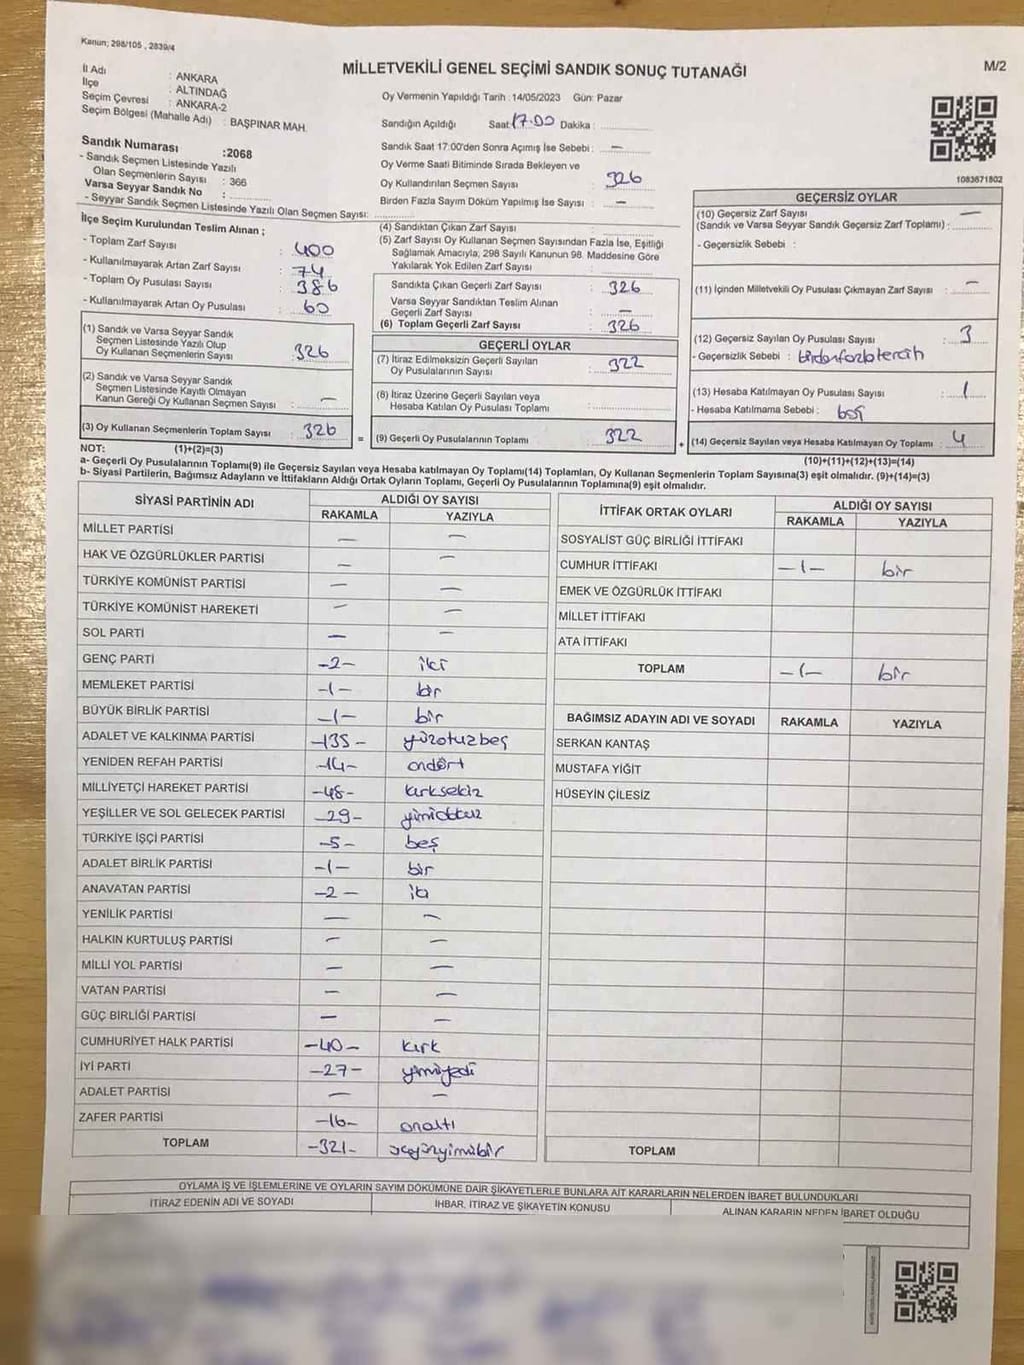 Kanun; 298/105 , 2839/4
M/2
MİLLETVEKİLİ GENEL SEÇİMİ SANDIK SONUÇ TUTANAĞI
İl Adı : ANKARA
İlçe : ALTINDAĞ
Seçim Çevresi : ANKARA-2
Seçim Bölgesi (Mahalle Adı) : BAŞPINAR MAH.
Sandık Numarası :2068
- Sandık Seçmen Listesinde Yazılı
Olan Seçmenlerin Sayısı : 366
Varsa Seyyar Sandık No :
- Seyyar Sandık Seçmen Listesinde Yazılı Olan Seçmen Sayısı:
Oy Vermenin Yapıldığı Tarih :14/05/2023 Gün: Pazar
Sandığın Açıldığı Saat:17.00 Dakika :
Sandık Saat 17:00'den Sonra Açımış İse Sebebi : —
Oy Verme Saati Bitiminde Sırada Bekleyen ve
Oy Kullandırılan Seçmen Sayısı : 326
Birden Fazla Sayım Döküm Yapılmış İse Sayısı : —
1083671802
İlçe Seçim Kurulundan Teslim Alınan ;
- Toplam Zarf Sayısı : 400
- Kullanılmayarak Artan Zarf Sayısı : 74
- Toplam Oy Pusulası Sayısı : 386
- Kullanılmayarak Artan Oy Pusulası : 60
(1) Sandık ve Varsa Seyyar Sandık
Seçmen Listesinde Yazılı Olup
Oy Kullanan Seçmenlerin Sayısı : 326
(2) Sandık ve Varsa Seyyar Sandık
Seçmen Listesinde Kayıtlı Olmayan
Kanun Gereği Oy Kullanan Seçmen Sayısı : —
(3) Oy Kullanan Seçmenlerin Toplam Sayısı : 326
(1)+(2)=(3)
(4) Sandıktan Çıkan Zarf Sayısı :
(5) Zarf Sayısı Oy Kullanan Seçmen Sayısından Fazla İse, Eşitliği
Sağlamak Amacıyla, 298 Sayılı Kanunun 98. Maddesine Göre
Yakılarak Yok Edilen Zarf Sayısı :
Sandıkta Çıkan Geçerli Zarf Sayısı : 326
Varsa Seyyar Sandıktan Teslim Alınan
Geçerli Zarf Sayısı : —
(6) Toplam Geçerli Zarf Sayısı : 326
GEÇERLİ OYLAR
(7) İtiraz Edilmeksizin Geçerli Sayılan
Oy Pusulalarının Sayısı : 322
(8) İtiraz Üzerine Geçerli Sayılan veya
Hesaba Katılan Oy Pusulası Toplamı :
= (9) Geçerli Oy Pusulalarının Toplamı : 322
GEÇERSİZ OYLAR
(10) Geçersiz Zarf Sayısı —
(Sandık ve Varsa Seyyar Sandık Geçersiz Zarf Toplamı) :
- Geçersizlik Sebebi :
(11) İçinden Milletvekili Oy Pusulası Çıkmayan Zarf Sayısı : —
(12) Geçersiz Sayılan Oy Pusulası Sayısı : 3
- Geçersizlik Sebebi : birdenfazlatercih
(13) Hesaba Katılmayan Oy Pusulası Sayısı : 1
- Hesaba Katılmama Sebebi : boş
+ (14) Geçersiz Sayılan veya Hesaba Katılmayan Oy Toplamı : 4
(10)+(11)+(12)+(13)=(14)
NOT:
a- Geçerli Oy Pusulalarının Toplamı(9) ile Geçersiz Sayılan veya Hesaba katılmayan Oy Toplamı(14) Toplamları, Oy Kullanan Seçmenlerin Toplam Sayısına(3) eşit olmalıdır. (9)+(14)=(3)
b- Siyasi Partilerin, Bağımsız Adayların ve İttifakların Aldığı Ortak Oyların Toplamı, Geçerli Oy Pusulalarının Toplamına(9) eşit olmalıdır.
SİYASİ PARTİNİN ADI ALDIĞI OY SAYISI
RAKAMLA YAZIYLA
MİLLET PARTİSİ — —
HAK VE ÖZGÜRLÜKLER PARTİSİ — —
TÜRKİYE KOMÜNİST PARTİSİ — —
TÜRKİYE KOMÜNİST HAREKETİ — —
SOL PARTİ — —
GENÇ PARTİ -2- iki
MEMLEKET PARTİSİ -1- bir
BÜYÜK BİRLİK PARTİSİ -1- bir
ADALET VE KALKINMA PARTİSİ -135- yüzotuzbeş
YENİDEN REFAH PARTİSİ -14- ondört
MİLLİYETÇİ HAREKET PARTİSİ -48- kırksekiz
YEŞİLLER VE SOL GELECEK PARTİSİ -29- yirmidokuz
TÜRKİYE İŞÇİ PARTİSİ -5- beş
ADALET BİRLİK PARTİSİ -1- bir
ANAVATAN PARTİSİ -2- iki
YENİLİK PARTİSİ — —
HALKIN KURTULUŞ PARTİSİ — —
MİLLİ YOL PARTİSİ — —
VATAN PARTİSİ — —
GÜÇ BİRLİĞİ PARTİSİ — —
CUMHURİYET HALK PARTİSİ -40- kırk
İYİ PARTİ -27- yirmiyedi
ADALET PARTİSİ — —
ZAFER PARTİSİ -16- onaltı
TOPLAM -321- üçyüzyirmibir
İTTİFAK ORTAK OYLARI ALDIĞI OY SAYISI
RAKAMLA YAZIYLA
SOSYALİST GÜÇ BİRLİĞİ İTTİFAKI
CUMHUR İTTİFAKI -1- bir
EMEK VE ÖZGÜRLÜK İTTİFAKI
MİLLET İTTİFAKI
ATA İTTİFAKI
TOPLAM -1- bir
BAĞIMSIZ ADAYIN ADI VE SOYADI RAKAMLA YAZIYLA
SERKAN KANTAŞ
MUSTAFA YİĞİT
HÜSEYİN ÇİLESİZ
TOPLAM
OYLAMA İŞ VE İŞLEMLERİNE VE OYLARIN SAYIM DÖKÜMÜNE DAİR ŞİKAYETLERLE BUNLARA AİT KARARLARIN NELERDEN İBARET BULUNDUKLARI
İTİRAZ EDENİN ADI VE SOYADI İHBAR, İTİRAZ VE ŞİKAYETİN KONUSU ALINAN KARARIN NEDEN İBARET OLDUĞU